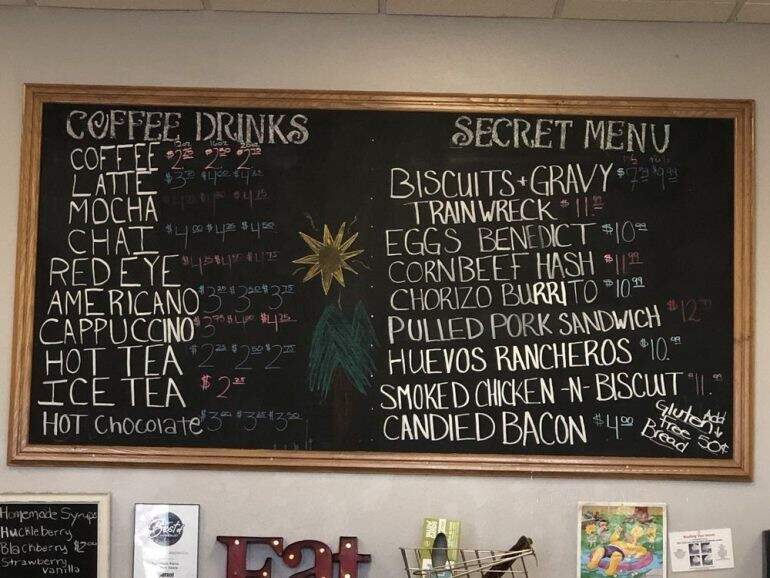 COFFEE DRINKS
12oz 16oz 20oz
COFFEE $2.25 $2.50 $2.75
LATTE $3.75 $4.00 $4.25
MOCHA
CHAI $4.00 $4.25 $4.50
RED EYE $4.25 $4.50 $4.75
AMERICANO $3.25 $3.50 $3.75
CAPPUCCINO $3.75 $4.00 $4.25
HOT TEA $2.25 $2.50 $2.75
ICE TEA $2.25
HOT Chocolate $3.00 $3.25 $3.50
SECRET MENU
BISCUITS + GRAVY $7.99 $9.99
TRAINWRECK $11.99
EGGS BENEDICT $10.99
CORNBEEF HASH $11.99
CHORIZO BURRITO $10.99
PULLED PORK SANDWICH $12.99
HUEVOS RANCHEROS $10.99
SMOKED CHICKEN -N- BISCUIT $11.99
CANDIED BACON $4.00
Gluten free Bread
Add 50¢
Homemade Syrups
Huckleberry
Blackberry $2.00
Strawberry
Vanilla
Best of
Eat